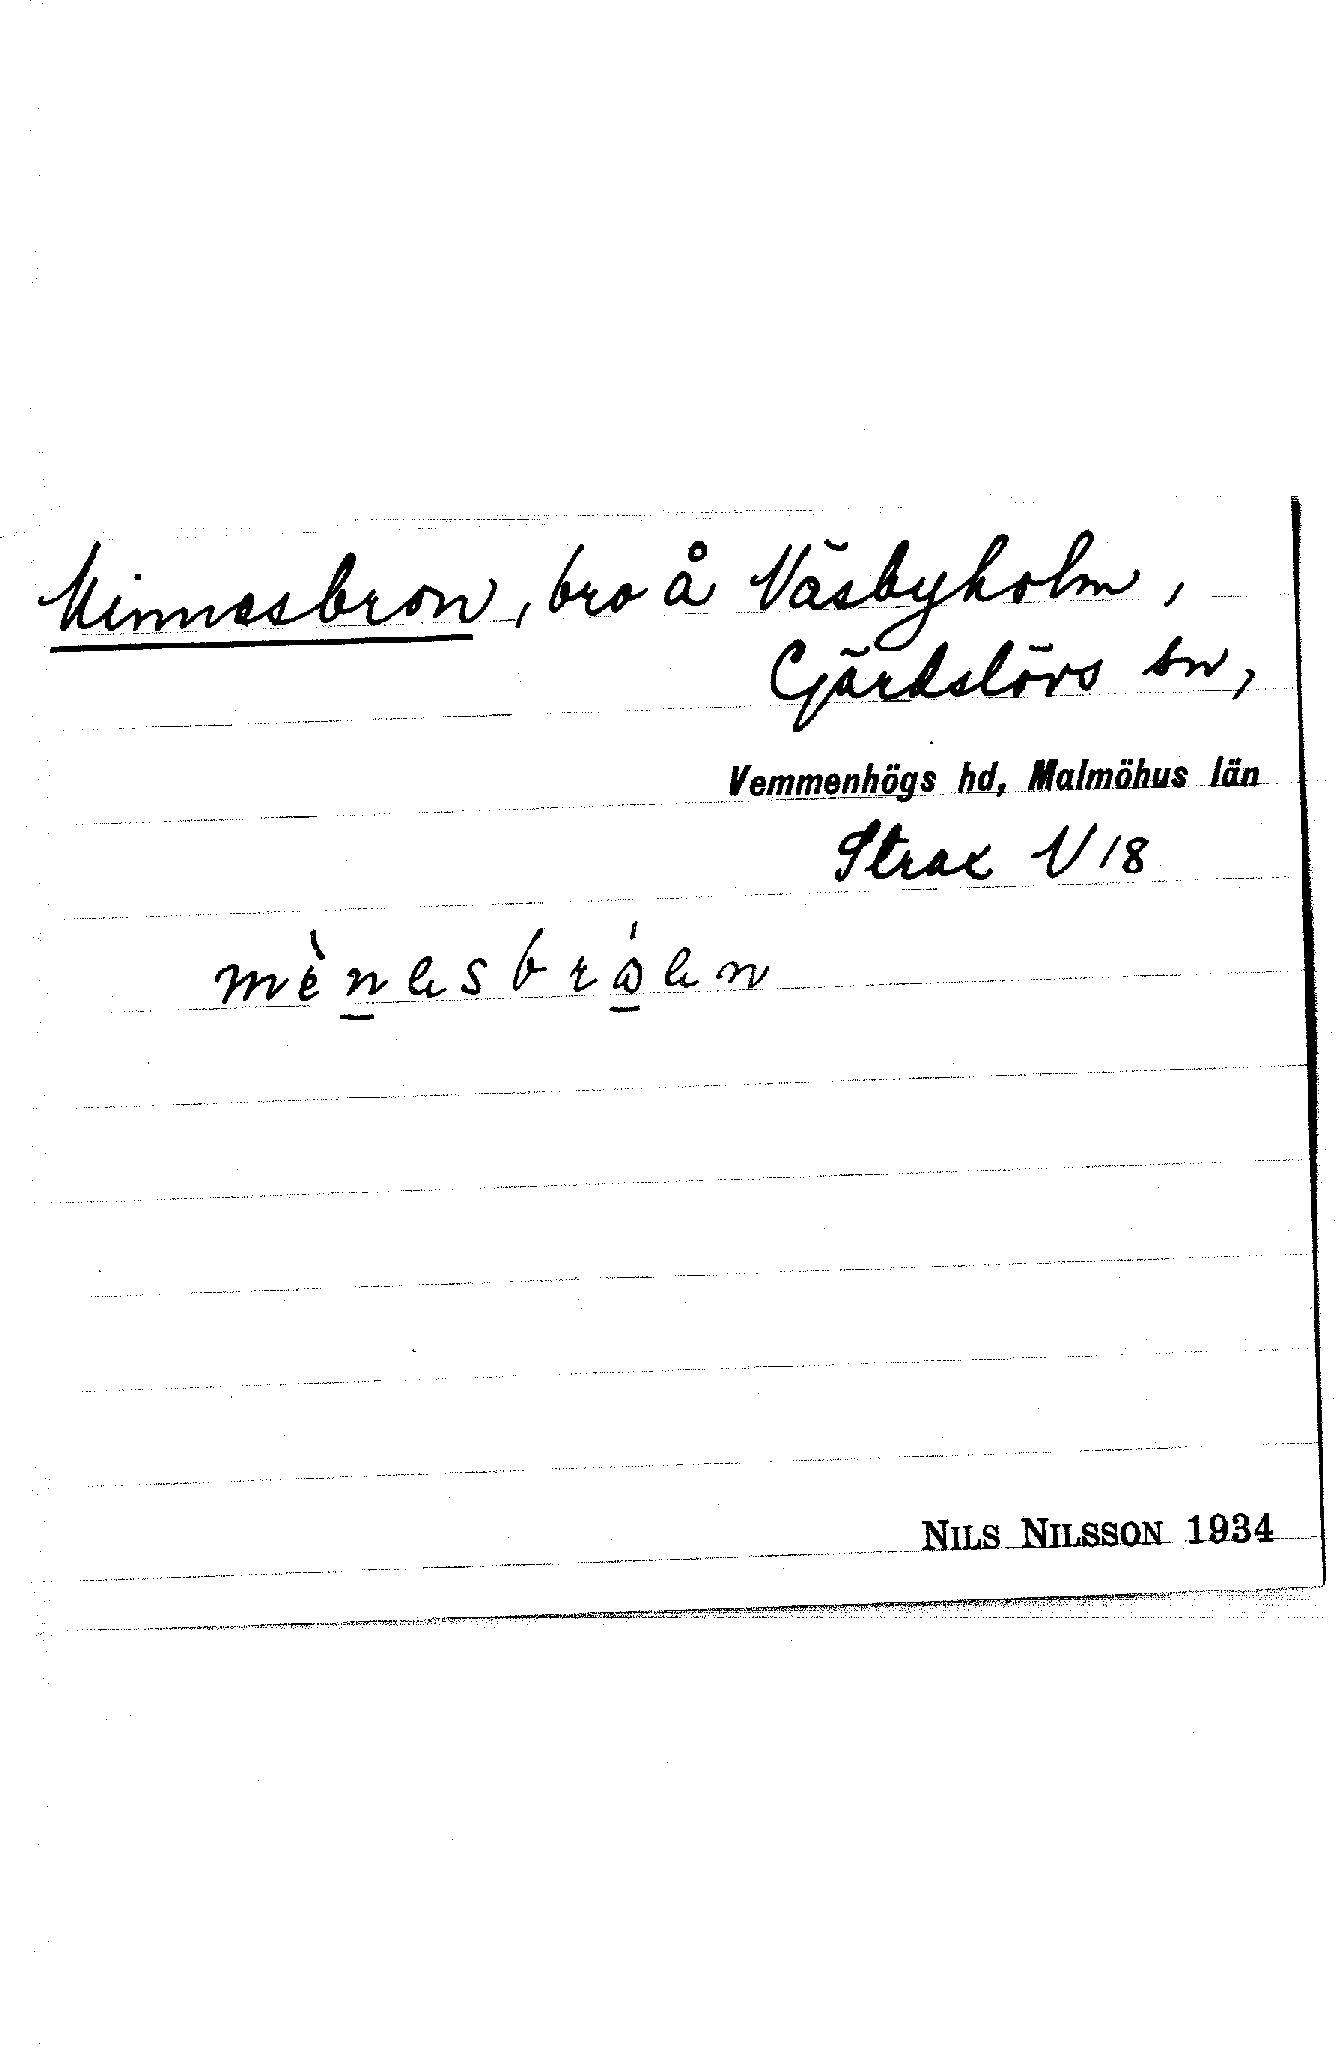 Minnesbron, bro å Väsbyholm,
Gärdslövs sn,
Vemmenhögs hd, Malmöhus län
Strax V 18
mènesbròen
NILS NILSSON 1934